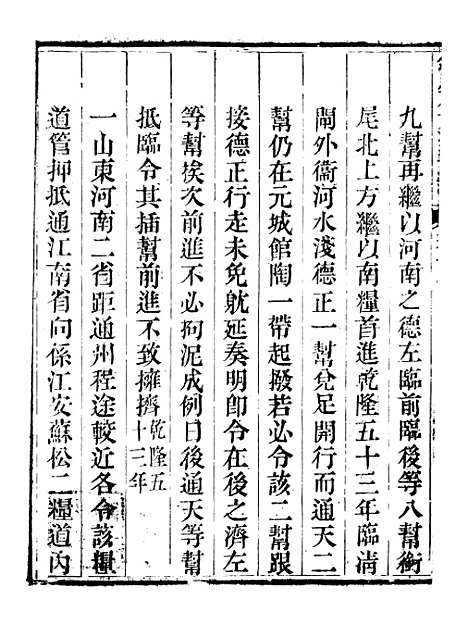 九幫再繼以河南之德左臨前臨後等八幫銜
尾北上方繼以南糧首進乾隆五十三年臨淸
閘外衞河水淺德正一幫兌足開行而通天二
幫仍在元城館陶一帶起撥若必令該二幫跟
接德正行走未免躭延奏明卽令在後之濟左
等幫挨次前進不必拘泥成例日後通天等幫
抵臨令其插幫前進不致擁擠乾隆五十三年
一山東河南二省距通州程途較近各令該糧
道管押抵通江南省向係江安蘇松二糧道內